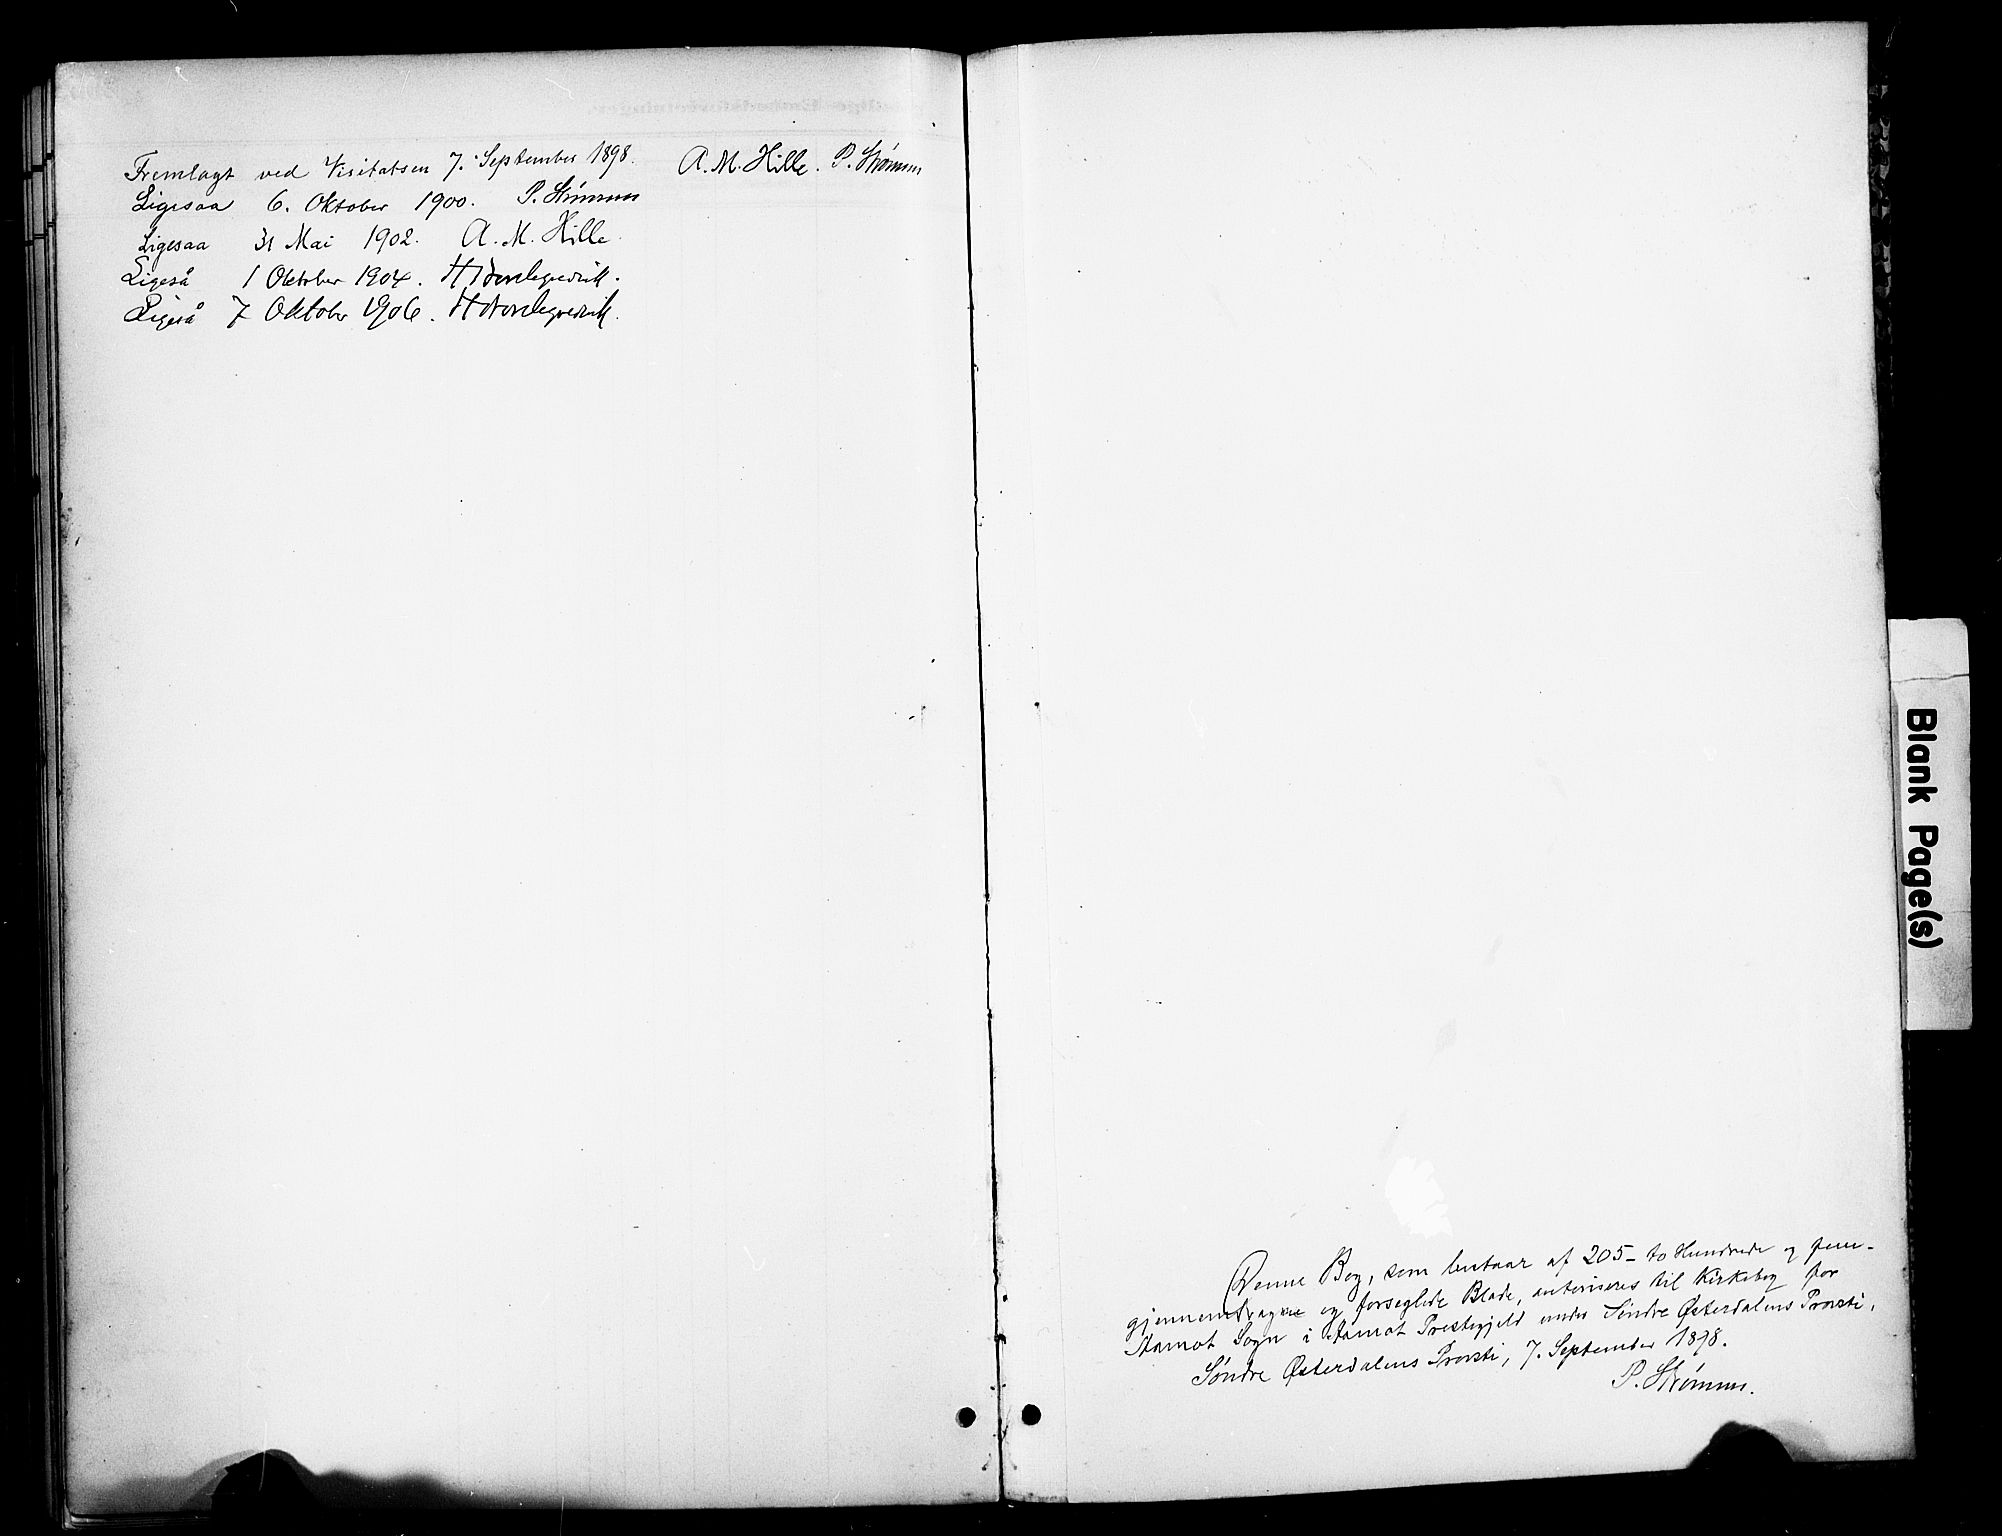 Fremlagt ved Visitatsen 7. September 1898. A. M. Hille. P. Strømme
Ligesaa 6. Oktober 1900. P. Strømme
Ligesaa 31 Mai 1902. A. M. Hille.
Ligeså 1 Oktober 1904.
Ligeså 7 Oktober 1906.
Denne Bog, som bestaar af 205 – to Hundrede og fem –
gjennemdragne og forseglede Blade, autoriseres til Kirkebog for
Aamot Sogn i Aamot Prestegjeld under Søndre Østerdalens Provsti.
Søndre Østerdalens Provsti, 7. September 1898.
P. Strømme.
Blank Page(s)